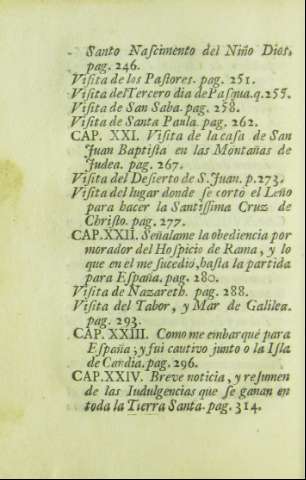 Santo Naſcimento del Niño Dios.
pag. 246.
Viſita de los Paſtores. pag. 251.
Viſita del Tercero dia de Paſqua. q. 255.
Viſita de San Saba. pag. 258.
Viſita de Santa Paula. pag. 262.
CAP. XXI. Viſita de la caſa de San
Juan Baptiſta en las Montañas de
Judea. pag. 267.
Viſita del Deſierto de S. Juan. p. 273.
Viſita del lugar donde ſe cortò el Leño
para hacer la Santiſſima Cruz de
Chriſto. pag. 277.
CAP. XXII. Señalame la obediencia por
morador del Hoſpicio de Rama, y lo
que en el me ſucediò, haſta la partida
para Eſpaña. pag. 280.
Viſita de Nazareth. pag. 288.
Viſita del Tabor, y Mar de Galilea.
pag. 293.
CAP. XXIII. Como me embarquè para
Eſpaña; y fui cautivo junto o la Isla
de Candia. pag. 296.
CAP. XXIV. Breve noticia, y reſumen
de las Indulgencias que ſe ganan en
toda la Tierra Santa. pag. 314.